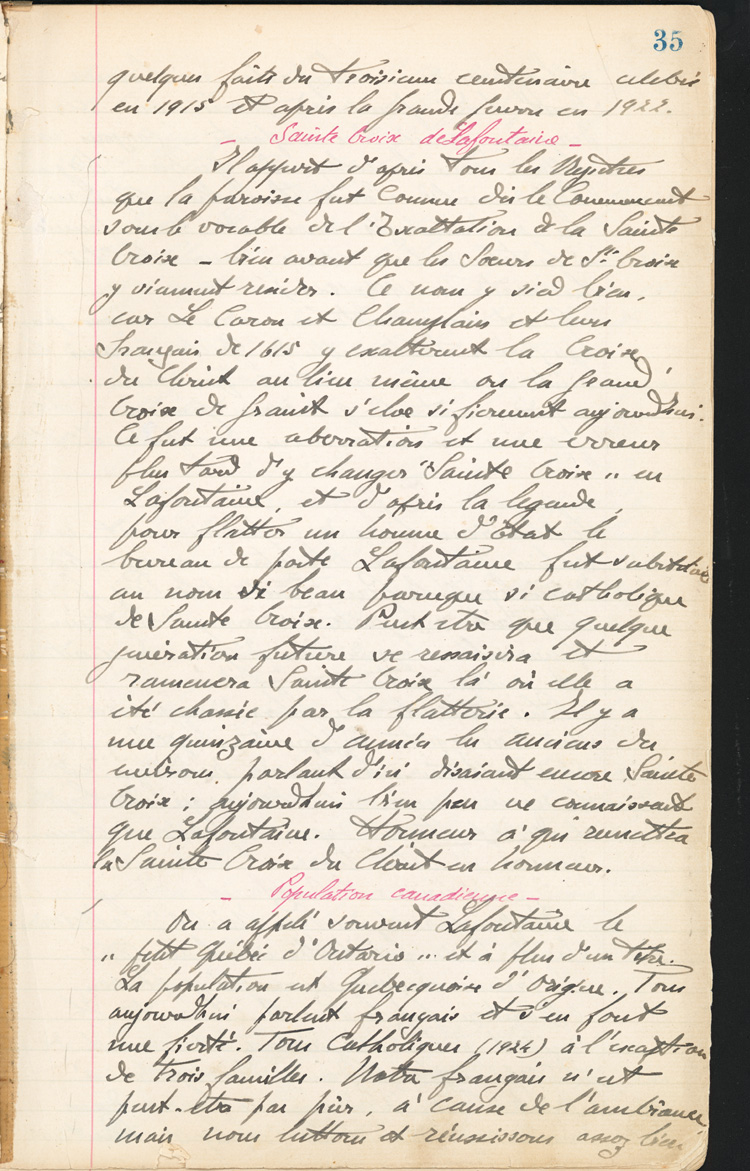 35
quelques faits du troisième centenaire célébré
en 1915 et après la grande guerre en 1922.
- Sainte Croix de Lafontaine -
Il appert d'après tous les Registres
que la paroisse fut connue dès le Commencement
sous le vocable de l'Exaltation de la Sainte
Croix - bien avant que les Soeurs de Ste Croix
y vinssent résider. Ce nom y sied bien,
car Le Caron et Champlain et leurs
français de 1615 y exaltèrent la Croix
du Christ au lieu même où la grande
Croix de Granit s'élève si fièrement aujourd'hui.
Ce fut une aberration et une erreur
plus tard d'y changer "Sainte Croix" en
Lafontaine, et d'après la légende,
pour flatter un homme d'Etat le
bureau de poste Lafontaine fut substitué
au nom si beau parceque si catholique
de Sainte Croix. Peut être que quelque
génération future se ressaisira et
ramènera Sainte Croix là où elle a
été chassée par la flatterie. Il y a
une quinzaine d'années les anciens des
environs parlant d'ici disaient encore Sainte
Croix ; aujourd'hui bien peu ne connaissent
que Lafontaine. Honneur à qui remettra
la Sainte Croix du Christ en honneur.
- Population canadienne -
On a appelé souvent Lafontaine le
"petit Québec d'Ontario" et à plus d'un titre.
La population est Quebecquoise d'origine. Tous
aujourd'hui parlent français et s'en font
une fierté. Tous Catholiques (1924) à l'exception
de trois familles. Notre français n'est
peut-être pas pur, à cause de l'ambiance,
mais nous luttons et réussissons assez bien